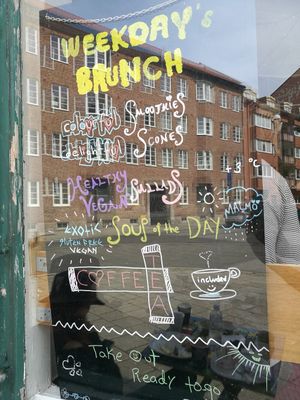 WEEKDAY's
BRUNCH
colourful SMOOTHIES
delightful SCONES
HEALTHY
VEGAN SALLADS
MALMÖ
SOUP of the DAY
EXOTIC
GLUTEN FREE
VEGAN
COFFEE
TEA
included
Take Out
Ready to go